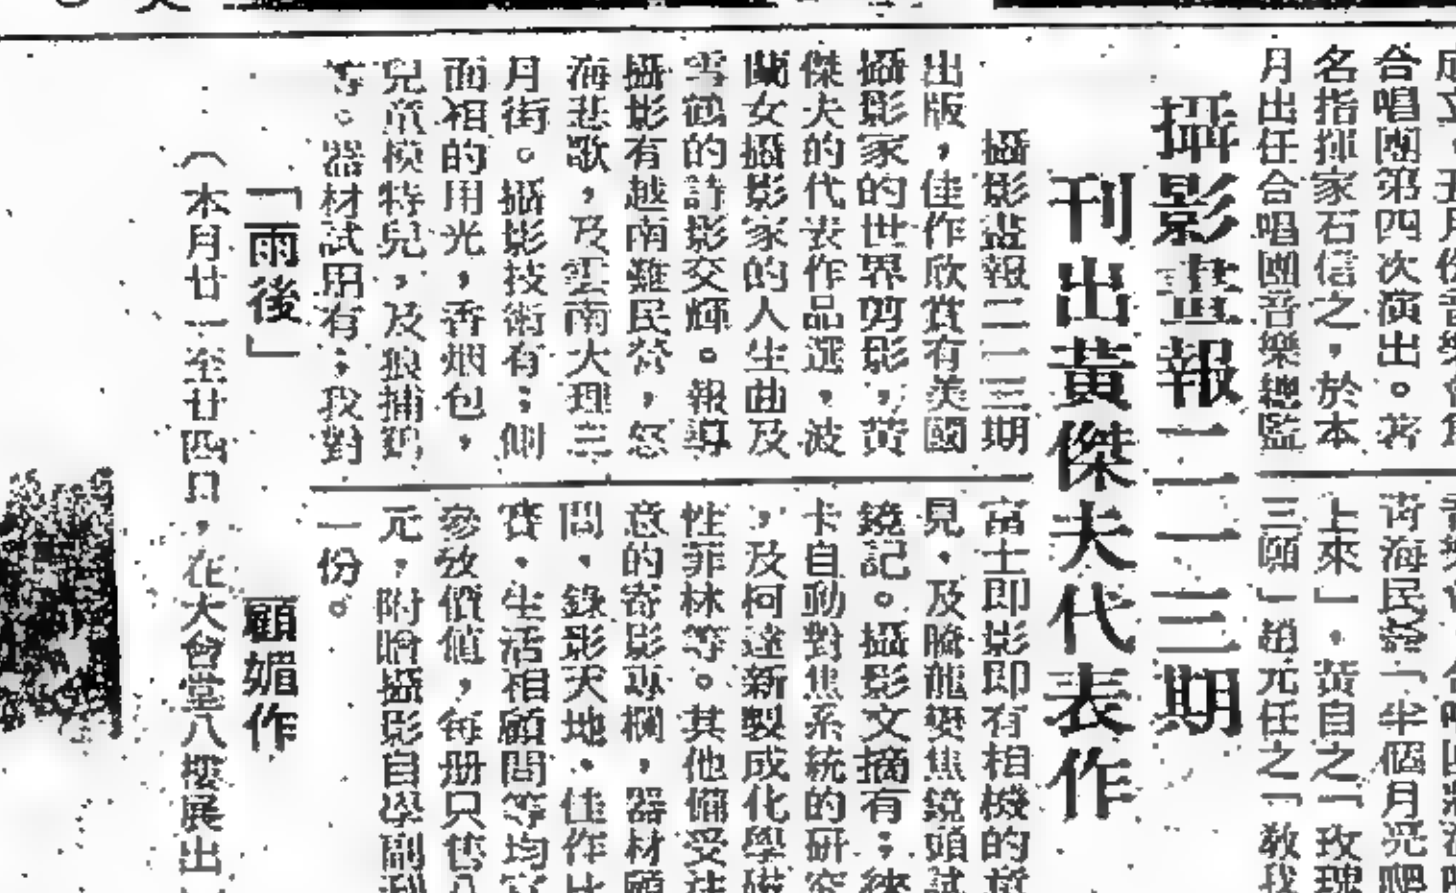 合唱團第四次演出。著
名指揮家石信之,於本
月出任合唱團音樂總監
青海民謠「半個月亮爬
上來」,黃自之「玫瑰
三願」趙元任之「教我
攝影畫報二一三期
刊出黃傑夫代表作
攝影畫報二一三期
出版,佳作欣賞有美國
攝影家的世界剪影,黃
傑夫的代表作品選,波
蘭女攝影家的人生曲及
雪鶴的詩影交輝。報導
攝影有越南難民營,怒
海悲歌,及雲南大理三
月街。攝影技術有;側
面相的用光,香烟包,
兒童模特兒,及狼捕鷄
等。器材試用有;我對
富士即影即有相機的意
見,及騰龍變焦鏡頭試
鏡記。攝影文摘有;徠
卡自動對焦系統的研究
,及柯達新製成化學磁
性菲林等。其他備受注
意的寄影專欄,器材顧
問,錄影天地,佳作比
賽,生活相顧問等均富
參攷價值,每册只售八
元,附贈攝影自學副刊
一份。
「雨後」 顧媚作
(本月廿一至廿四日,在大會堂八樓展出